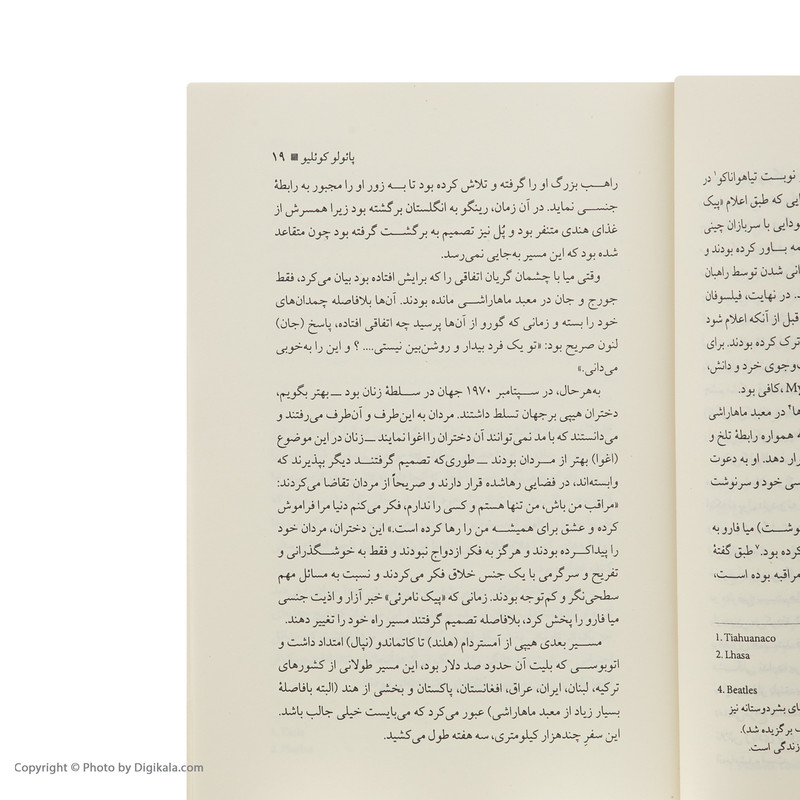 نوبت تیاهواناکو۱ در
ایی که طبق اعلام «پیک
ودایی با سربازان چینی
مه بـــاور کرده بودند و
انی شدن توسط راهبان
در نهایت، فیلسوفان
قبل از آنکه اعلام شود
ترک کرده بودند. برای
وجوی خرد و دانش،
My، کافی بود.
ها۴ در معبد ماهاراشی
ه همواره رابطهٔ تلخ و
رار دهد. او به دعوت
سی خود و سرنوشت
وشت) میا فارو به
کرده بود.۷ طبق گفتهٔ
مراقبه بوده است،
1. Tiahuanaco
2. Lhasa
4. Beatles
ای بشردوستانه نیز
ب برگزیده شد).
زندگی است.
پائولو کوئلیو ■ ۱۹
راهـــب بزرگ او را گرفته و تلاش کرده بود تا بـــه زور او را مجبور به رابطهٔ
جنســی نماید. در آن زمان، رینگو به انگلستان برگشته بود زیرا همســرش از
غذای هندی متنفر بود و پُل نیز تصمیم به برگشـــت گرفته بود چون متقاعد
شده بود که این مسیر به‌جایی نمی‌رسد.
وقتی میا با چشمان گریان اتفاقی را که برایش افتاده بود بیان می‌کرد، فقط
جورج و جان در معبد ماهاراشـــی مانده بودند. آن‌ها بلافاصله چمدان‌های
خود را بسته و زمانی که گورو از آن‌ها پرسید چه اتفاقی افتاده، پاسخ (جان)
لنون صریح بود: «تو یک فرد بیدار و روشن‌بین نیستی.... ؟ و این را به‌خوبی
می‌دانی.»
به‌هرحال، در ســـپتامبر ۱۹۷۰ جهان در سـلطهٔ زنان بود ــ بهتر بگویم،
دختران هیپی برجهان تسلط داشتند. مردان به این‌طرف و آن‌طرف می‌رفتند و
می‌دانستند که با مد نمی‌توانند آن دختران را اغوا نمایند ــ زنان در این موضوع
(اغوا) بهتر از مـــردان بودند ــ طوری‌که تصمیم گرفتنـــد دیگر بپذیرند که
وابسته‌اند، در فضایی رهاشده قرار دارند و صریحاً از مردان تقاضا می‌کردند:
«مراقب من باش، من تنها هستم و کسی را ندارم، فکر می‌کنم دنیا مرا فراموش
کرده و عشق برای همیشـــه من را رها کرده است.» این دختران، مردان خود
را پیداکـــرده بودند و هرگز به فکر ازدواج نبودند و فقط به خوشـــگذرانی و
تفریح و سرگرمی با یک جنس خلاق فکر می‌کردند و نسبت به مسائل مهم
سطحی‌نگر و کم‌توجه بودند. زمانی که «پیک نامرئی» خبر آزار و اذیت جنسی
میا فارو را پخش کرد، بلافاصله تصمیم گرفتند مسیر راه خود را تغییر دهند.
مســـیر بعدی هیپی از آمستردام (هلند) تا کاتماندو (نپال) امتداد داشت و
اتوبوســـی که بلیت آن حدود صد دلار بود، این مسیر طولانی از کشورهای
ترکیه، لبنان، ایران، عراق، افغانستان، پاکستان و بخشی از هند (البته بافاصلهٔ
بسیار زیاد از معبد ماهاراشی) عبور می‌کرد که می‌بایست خیلی جالب باشد.
این سفرِ چندهزار کیلومتری، سه هفته طول می‌کشید.
Copyright © Photo by Digikala.com